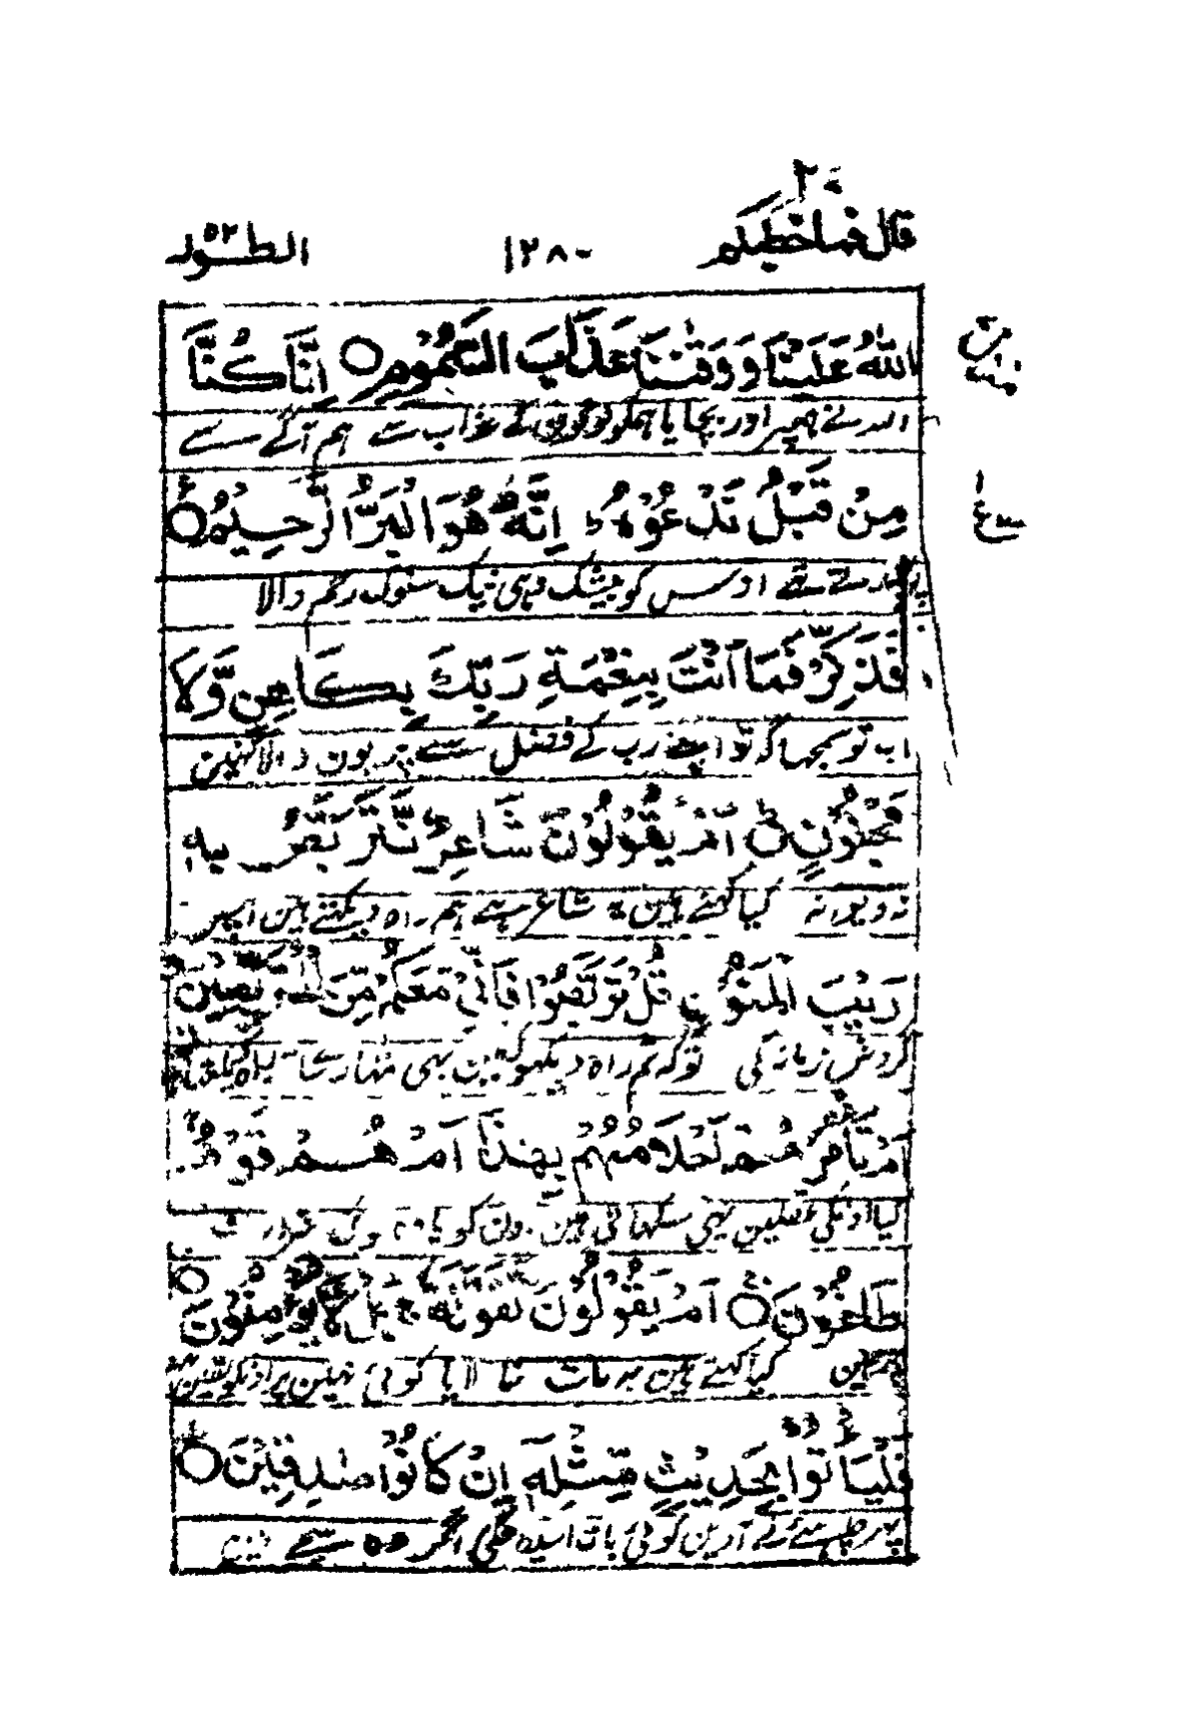 قال فماخطبكم ٢٧ ١٢٨٠ الطور ٥٢
اللهُ عَلَيْنَا وَوَقٰىنَا عَذَابَ السَّمُوْمِ ○ اِنَّا كُنَّا
اللہ نے ہمپر اور بچایا ہمکو لو کے عذاب سے ہم آگے سے
مِنْ قَبْلُ نَدْعُوْهُ ط اِنَّهٗ هُوَ الْبَرُّ الرَّحِيْمُ ○ ع
پکارتے تھے اوس کو بیشک وہی نیک سلوک رحم والا
فَذَكِّرْ فَمَا اَنْتَ بِنِعْمَةِ رَبِّكَ بِكَاهِنٍ وَّلَا
اب تو سمجھا کہ تو اپنے رب کے فضل سے پریون والا نہین
مَجْنُوْنٍ ط اَمْ يَقُوْلُوْنَ شَاعِرٌ نَّتَرَبَّصُ بِهٖ
نہ دیوانہ کیا کہتے ہین یہ شاعر ہے ہم راہ دیکھتے ہین اسپر
رَيْبَ الْمَنُوْنِ قُلْ تَرَبَّصُوْا فَاِنِّيْ مَعَكُمْ مِّنَ الْمُتَرَبِّصِيْنَ
گردش زمانہ کی تو کہہ تم راہ دیکھو کہ مین بھی تمہارے ساتھ راہ
اَمْ تَاْمُرُهُمْ اَحْلَامُهُمْ بِهٰذَا اَمْ هُمْ قَوْمٌ
کیا اونکی عقلین یہی سکھاتی ہین اون کو یا وہ لوگ
طَاغُوْنَ ○ اَمْ يَقُوْلُوْنَ تَقَوَّلَهٗ بَلْ لَّا يُؤْمِنُوْنَ ○
کیا کہتے ہین یہ بات بنا لایا کوئی نہین پر اونکو یقین نہین
فَلْيَاْتُوْا بِحَدِيْثٍ مِّثْلِهٖ اِنْ كَانُوْا صٰدِقِيْنَ ○
پھر چاہئے لے آوین کوئی بات اسطرح کی اگر وہ سچے ہین